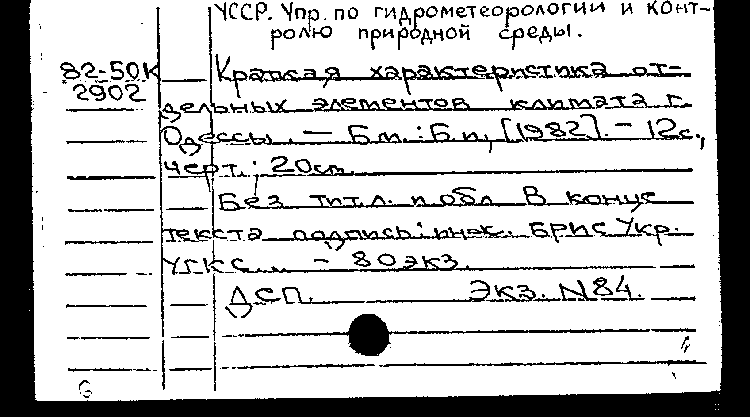 УССР. Упр. по гидрометеорологии и конт-
ролю природной среды.
82-50К Краткая характеристика от-
2902
дельных элементов климата г.
Одессы. — Б.м. : Б.и., [1982]. - 12с.,
черт.; 20см.
Без тит.л. и обл. В конце
текста подпись: инж. БРИС Укр.
УГКС. - 80экз.
ДСП. Экз. N84.